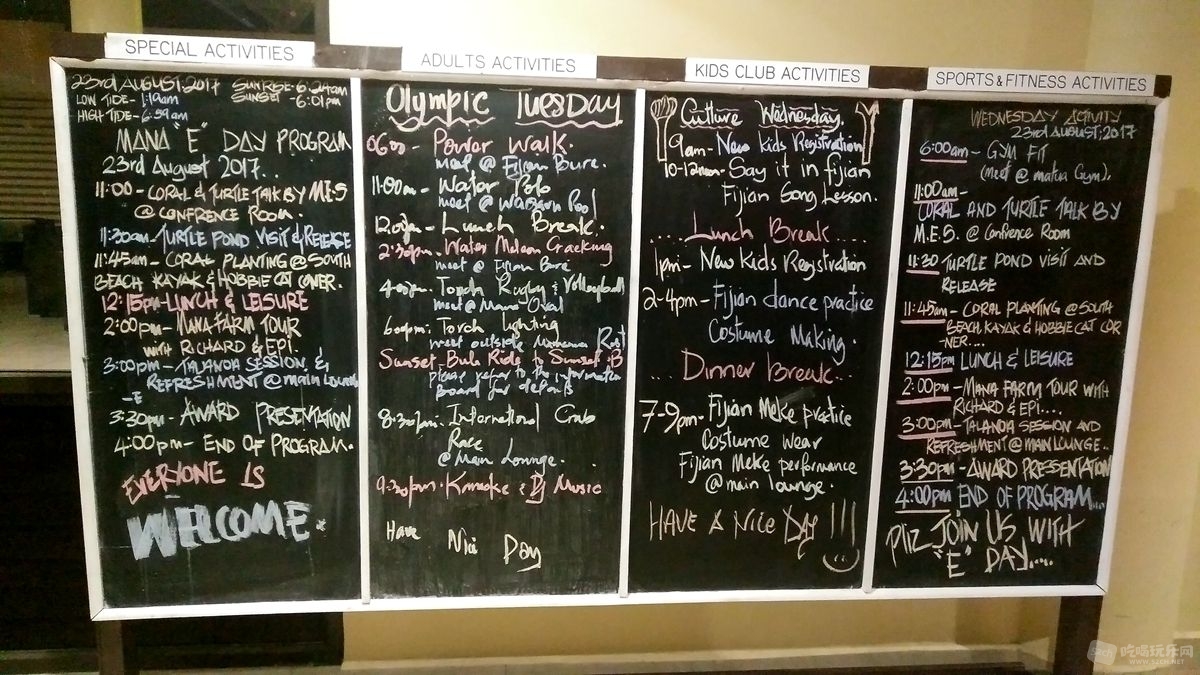 SPECIAL ACTIVITIES
23rd AUGUST, 2017 SUNRISE - 6:24am
LOW TIDE - 1:19am SUNSET - 6:01pm
HIGH TIDE - 6:59am
MANA "E" DAY PROGRAM
23rd August 2017...
11:00 - CORAL & TURTLE TALK BY M.E.S
@ CONFRENCE ROOM.
11:30am - TURTLE POND VISIT & RELEASE
11:45am - CORAL PLANTING @ SOUTH
BEACH KAYAK & HOBBIE CAT CORNER.
12:15pm - LUNCH & LEISURE
2:00pm - MANA FARM TOUR
WITH RICHARD & EPI.
3:00pm - TALANOA SESSION &
REFRESHMENT @ main Lounge
3:30pm - AWARD PRESENTATION
4:00pm - END OF PROGRAM.
EVERYONE IS
WELCOME.
ADULTS ACTIVITIES
Olympic TUESDAY
06:00 - Power Walk.
meet @ Fijian Bure.
11:00am - Water Polo
meet @ Pool
12:00pm - Lunch Break.
2:30pm - Water Melon Cracking
meet @ Fijian Bure
4:00pm - Touch Rugby & Volleyball
meet @ Mana Oval
6:00pm: Torch Lighting
meet outside Mamanuca Rest
Sunset Bula Ride to Sunset B
please refer to the information
Board for details
8:30pm - International Crab
Race
@ Main Lounge.
9:30pm - Karaoke & Dj Music
Have Nice Day
KIDS CLUB ACTIVITIES
Culture Wednesday.
9am - New Kids Registration
10-12noon - Say it in Fijian
Fijian Song Lesson.
..... Lunch Break .....
1pm - New Kids Registration
2-4pm - Fijian dance practice
Costume Making.
... Dinner Break...
7-9pm - Fijian Meke practice
Costume wear
Fijian Meke performance
@ main lounge.
HAVE A NICE DAY !!!
SPORTS & FITNESS ACTIVITIES
WEDNESDAY ACTIVITY
23rd AUGUST, 2017
6:00am - GYM FIT
(meet @ matua Gym).
11:00am -
CORAL AND TURTLE TALK BY
M.E.S. @ Confrence Room
11:30 TURTLE POND VISIT AND
RELEASE
11:45am - CORAL PLANTING @ SOUTH
BEACH KAYAK & HOBBIE CAT COR
NER....
12:15pm LUNCH & LEISURE
2:00pm - MANA FARM TOUR WITH
RICHARD & EPI....
3:00pm - TALANOA SESSION AND
REFRESHMENT @ MAIN LOUNGE..
3:30pm - AWARD PRESENTATION
4:00pm END OF PROGRAM....
Plz JOIN US WITH
"E" DAY.....
吃喝玩乐网